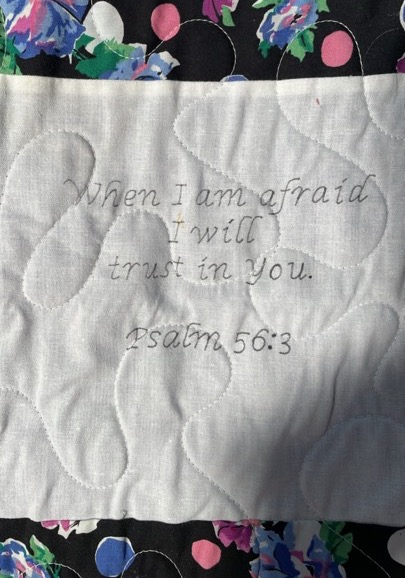 When I am afraid
I will
trust in You.
Psalm 56:3